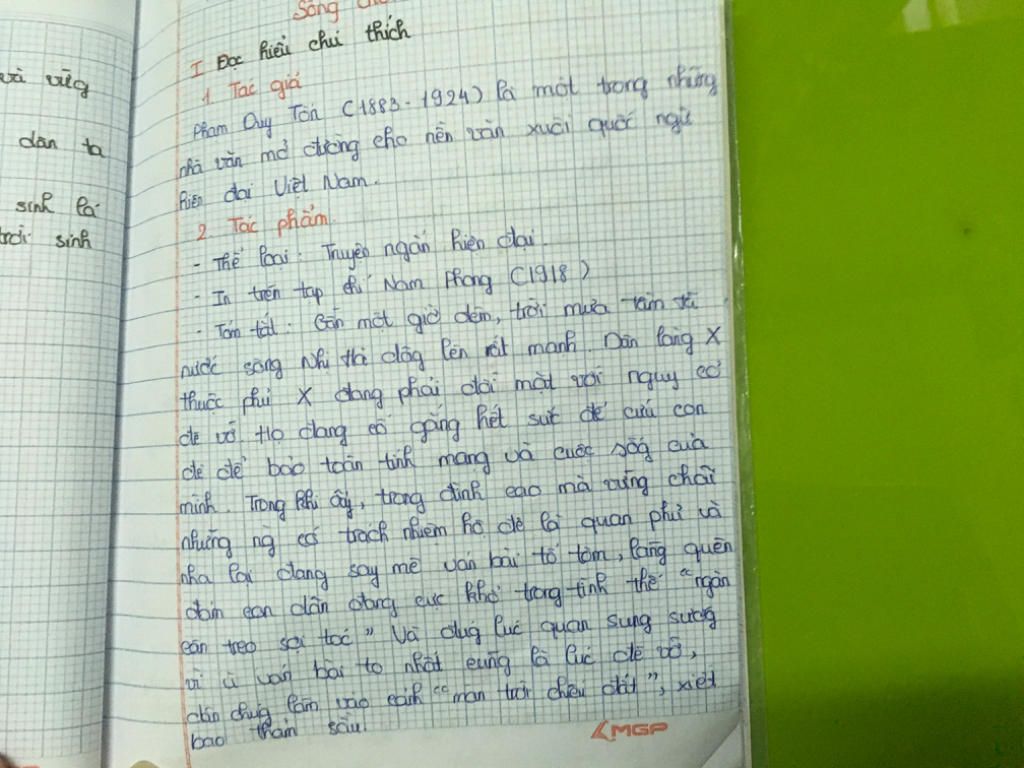 và vùg
dân ta
sinh lá
trời sinh
Sống
I Đọc hiểu chú thích
1 Tác giả
Phạm Duy Tốn (1883-1924) là một trong những
nhà văn mở đường cho nền văn xuôi quốc ngữ
hiện đại Việt Nam.
2 Tác phẩm.
- Thể loại: Truyện ngắn hiện đại.
- In trên tạp chí Nam Phong (1918)
- Tóm tắt: Gần một giờ đêm, trời mưa tầm tã
nước sông Nhị Hà dâg lên rất mạnh. Dân làng X
thuộc phủ X đang phải đối mặt với nguy cơ
đê vỡ. Họ đang cố gắng hết sức để cứu con
đê để bảo toàn tính mạng và cuộc sốg của
mình. Trong khi ấy, trong đình cao mà vững chãi
những ng có trách nhiệm hộ đê là quan phủ và
nha lại đang say mê ván bài tổ tôm, lãng quên
đám con dân đang cực khổ trong tình thế "ngàn
cân treo sợi tóc" Và đúg lúc quan sung sướg
vì ù ván bài to nhất cũng là lúc đê vỡ,
dân chúg lâm vào cảnh "màn trời chiếu đất", xiết
bao thảm sầu.
MGP